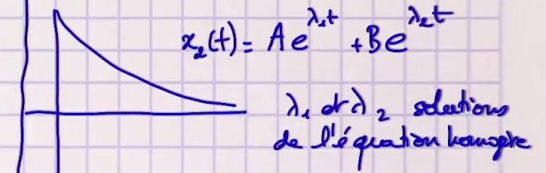 x₂(t) = Ae^{λ₁t} + Be^{λ₂t}
λ₁ et λ₂ solutions
de l'équation homogène